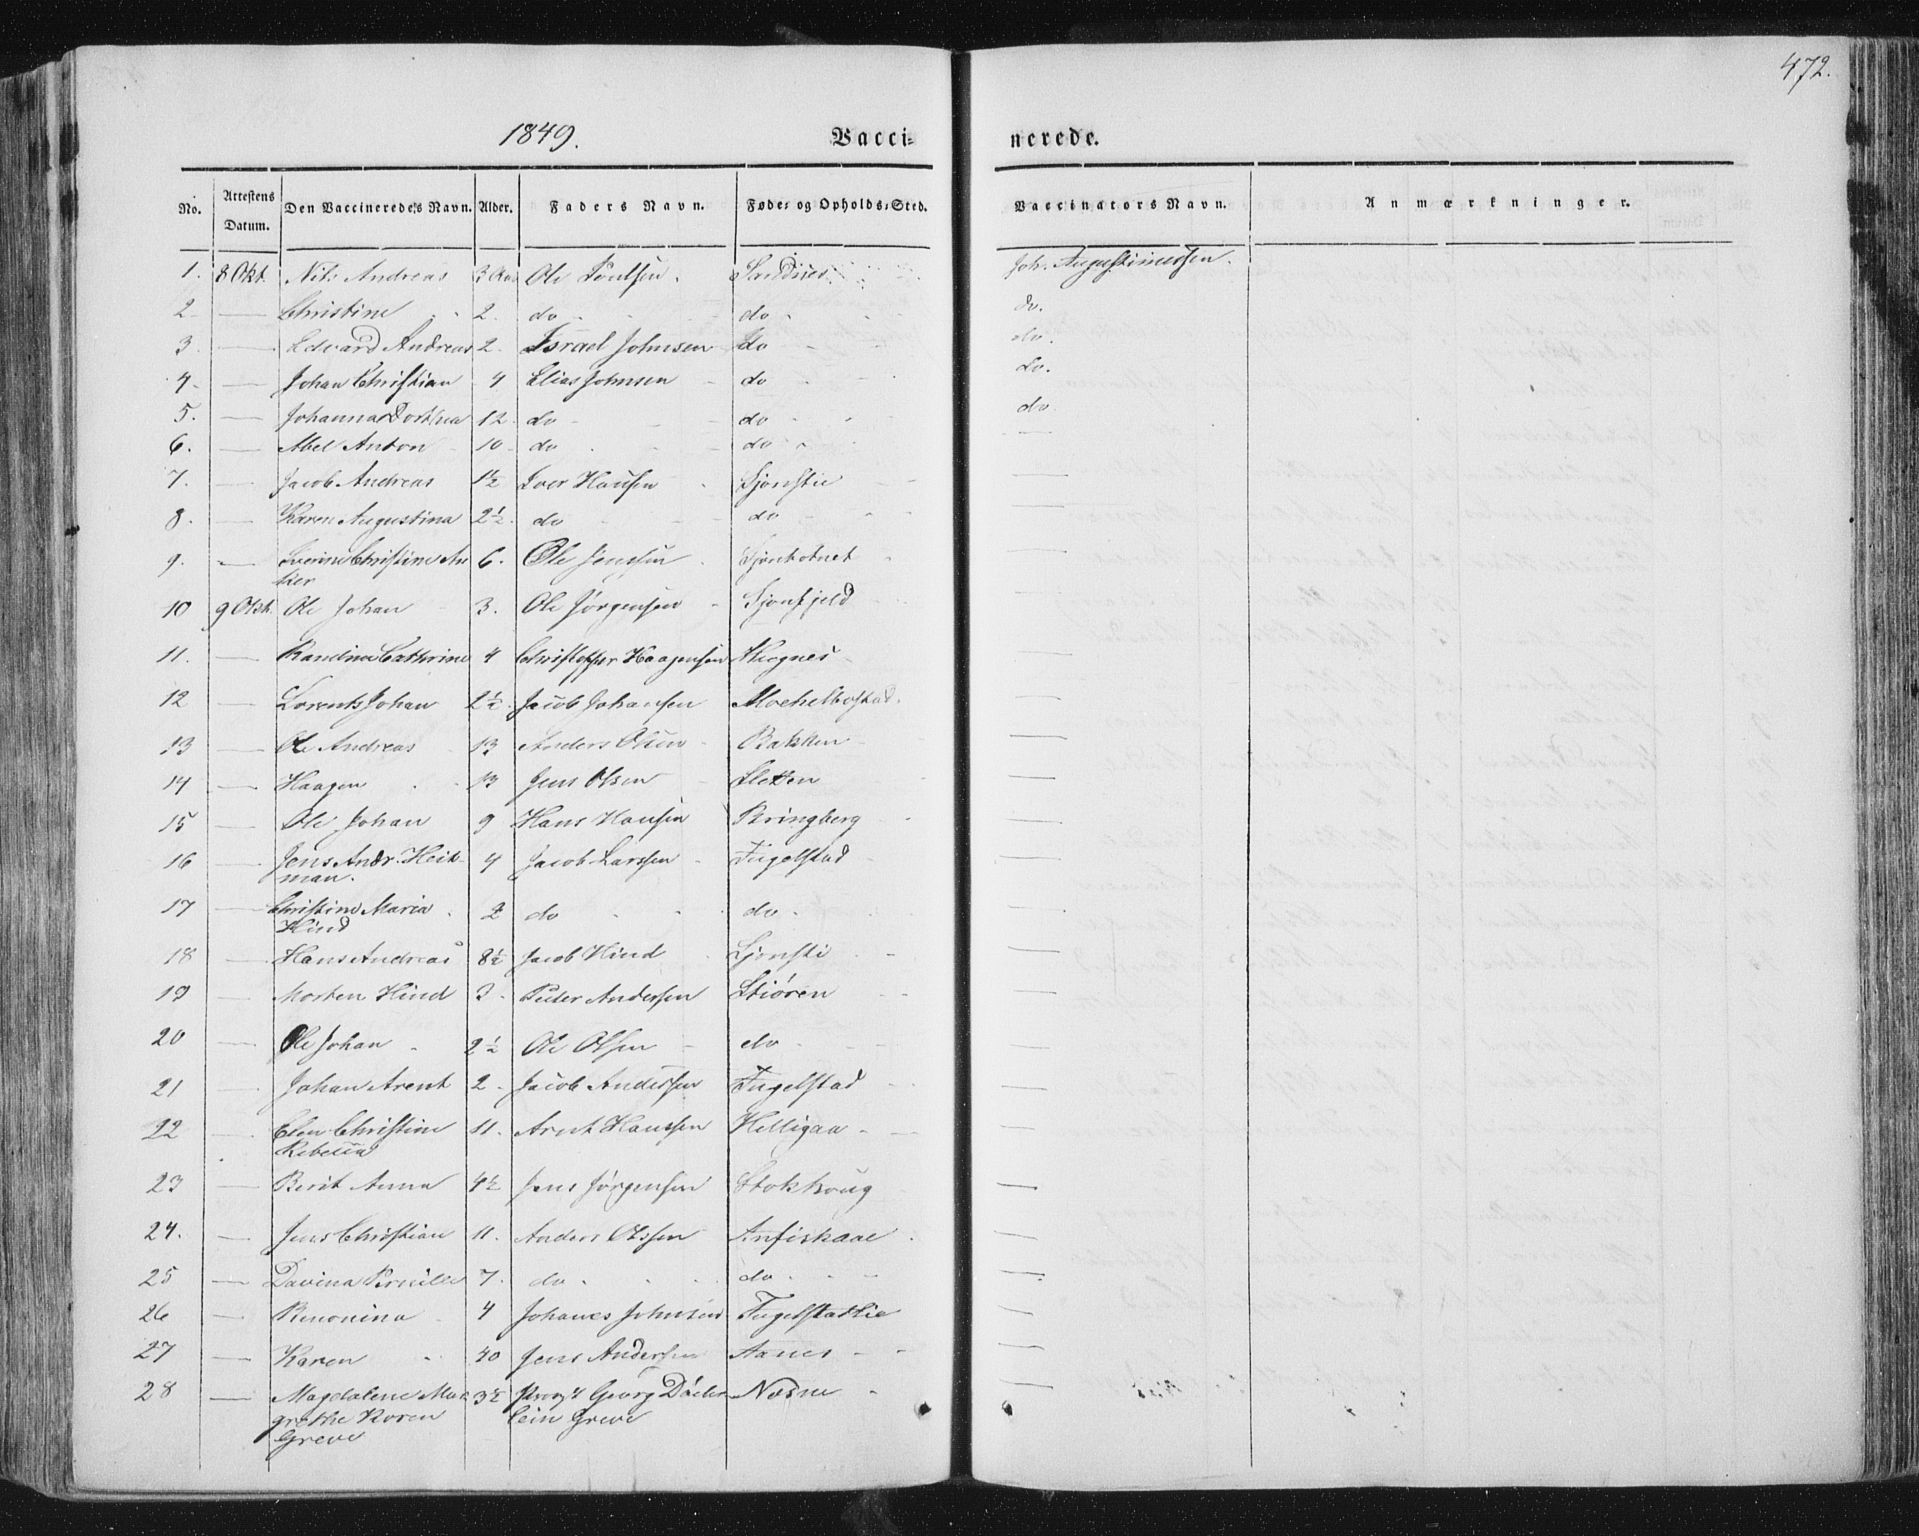 472.
1849. Vacci- nerede.
No. Attestens Datum. Den Vaccineredes Navn. Alder. Faders Navn. Føde- og Opholds-Sted. Vaccinators Navn. Anmærkninger.
1. 8 Okt. Nils Andreas 3 Ole Joh. Augustinussen.
2 — Christine 2. do do do.
3. — Edvard Andreas 2. Israel Johnsen do do.
4. — Johan Christian 4 Elias Johnsen do do.
5. — Johanna Dorthea 12. do do do.
6. — Abel Anton 10 do do
7. — Jacob Andreas 1½ Iver Hansen Sjonstie —
8. — Karen Augustina 2½ do do —
9. — Christine An 6. Ole Jenssen Sjonbotnet —
10 9 Okt. Ole Johan 3. Ole Jørgensen Sjonfjeld —
11. — Randine Cathrine 4 Christopher Haagensen —
12 — Lorents Johan 2½ Jacob Johansen —
13 — Ole Andreas 13 Anders Olsen Bakken —
14 — Haagen 13 Jens Olsen Sletten —
15 — Ole Johan 9 Hans Hansen Bringberg —
16 — Jens Andr. Heit- 4 Jacob Larssen Fugelstad —
man.
17 — Christine Maria 2 do do —
Hind
18 — Hans Andreas 8½ Jacob Hind Sjonsti —
19 — Morten Hind 3. Peder Andersen Stiøren —
20 — Ole Johan 2½ Ole Olsen do —
21 — Johan Arent 2 Jacob Anderssen Fugelstad —
22 — Elen Christine 11. Arnt Hanssen Helligaa —
Rebecca
23 — Berit Anna 4½ Jens Jørgensen Stokkoug —
24. — Jens Christian 11. Anders Olssen Anfiskaae —
25 — Davina Pernille 7. do do —
26 — Benonina 4 Johanes Johnsen Fugelstadlie —
27 — Karen 40 Jens Andersen Aanes —
28 — Magdalene Mar 3½ Georg Døder Nesne —
grethe Koren lein Greve
Greve